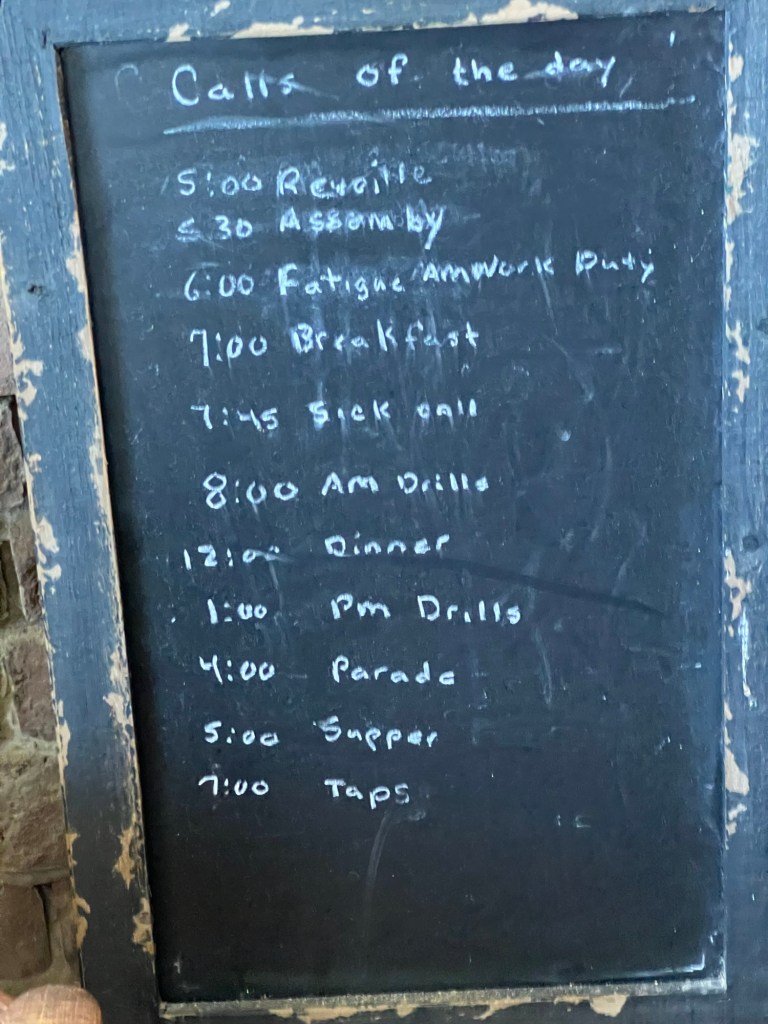 Calls of the day
5:00 Reveille
5 30 Assemby
6:00 Fatigue Am Work Duty
7:00 Breakfast
7:45 Sick call
8:00 Am Drills
12:00 Dinner
1:00 Pm Drills
4:00 Parade
5:00 Supper
7:00 Taps